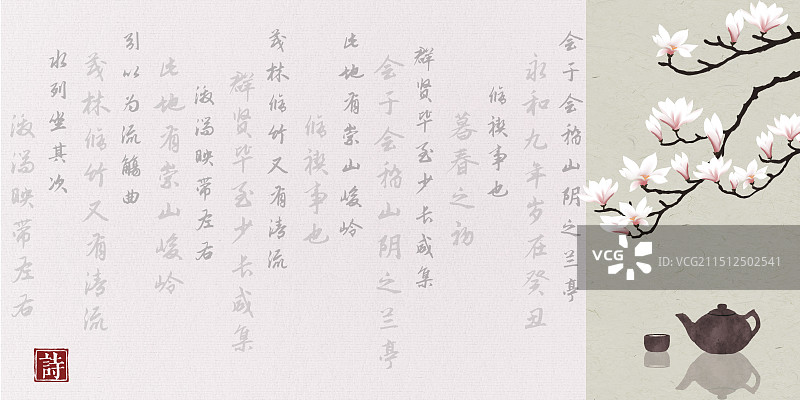 会于会稽山阴之兰亭
永和九年岁在癸丑
修禊事也
暮春之初
群贤毕至少长咸集
会于会稽山阴之兰亭
此地有崇山峻岭
修禊事也
茂林修竹又有清流
群贤毕至少长咸集
激湍映带左右
此地有崇山峻岭
引以为流觞曲
茂林修竹又有清流
水列坐其次
激湍映带左右
詩
VCG
VCG211512502541